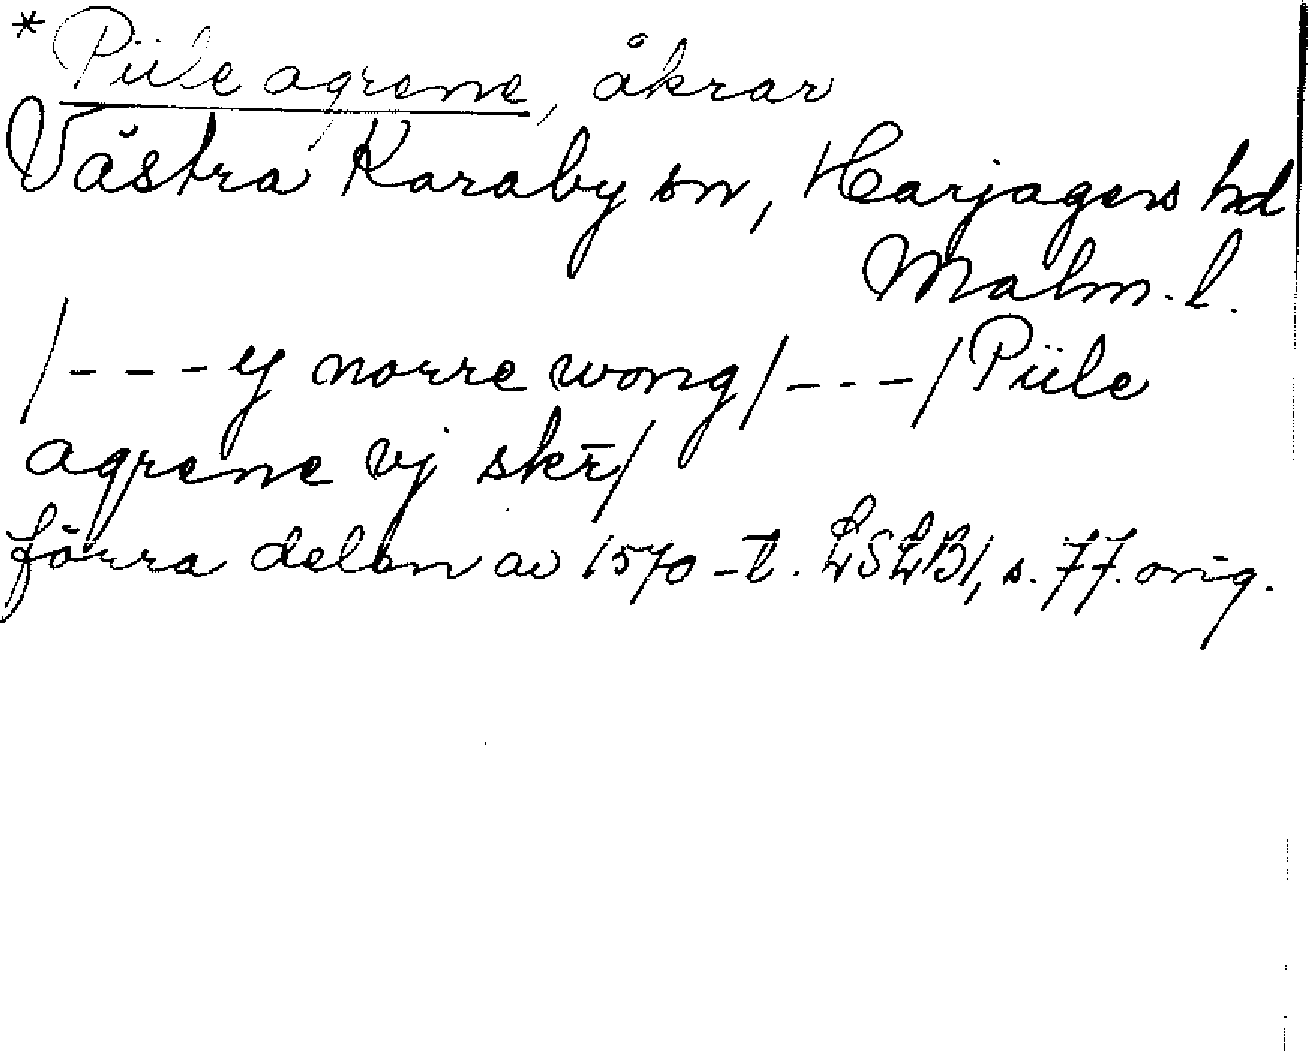 * Piile agrene, åkrar
Västra Karaby sn, Harjagers hd
Malm. l.
/---y norre wong/---/Piile
agrene vj skr̄/
förra delen av 1570-t. LSLB1, s. 77. orig.